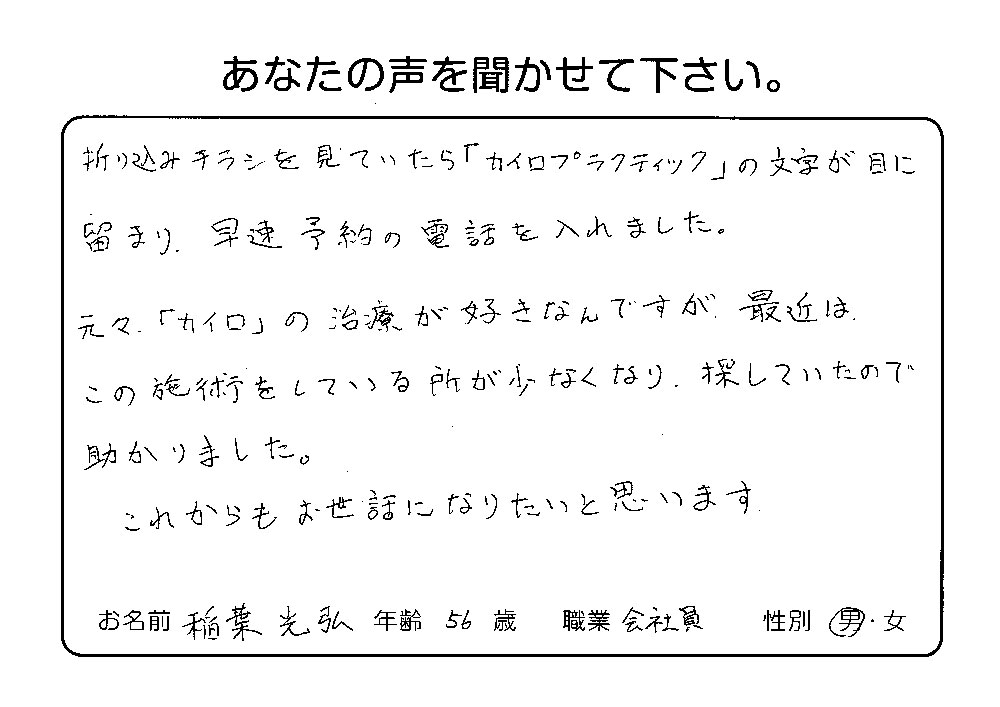 あなたの声を聞かせて下さい。
折り込みチラシを見ていたら「カイロプラクティック」の文字が目に
留まり、早速予約の電話を入れました。
元々、「カイロ」の治療が好きなんですが、最近は、
この施術をしている所が少なくなり、探していたので
助かりました。
これからもお世話になりたいと思います
お名前 稲葉 光弘 年齢 56 歳 職業 会社員 性別 男・女